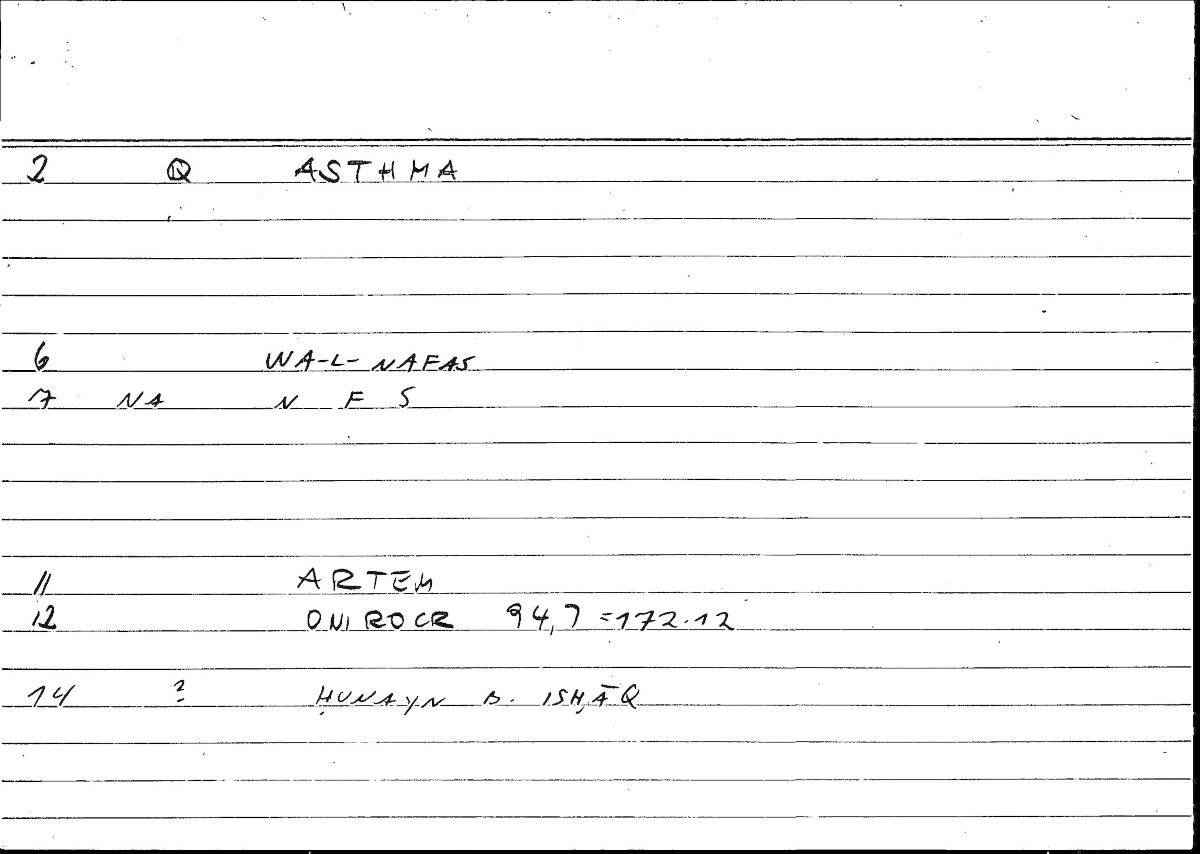 2 Q ASTHMA
6 WA-L-NAFAS
7 NA N F S
11 ARTEM
12 ONIROCR 94,7 =172.12
14 ? ḤUNAYN B. ISḤĀQ